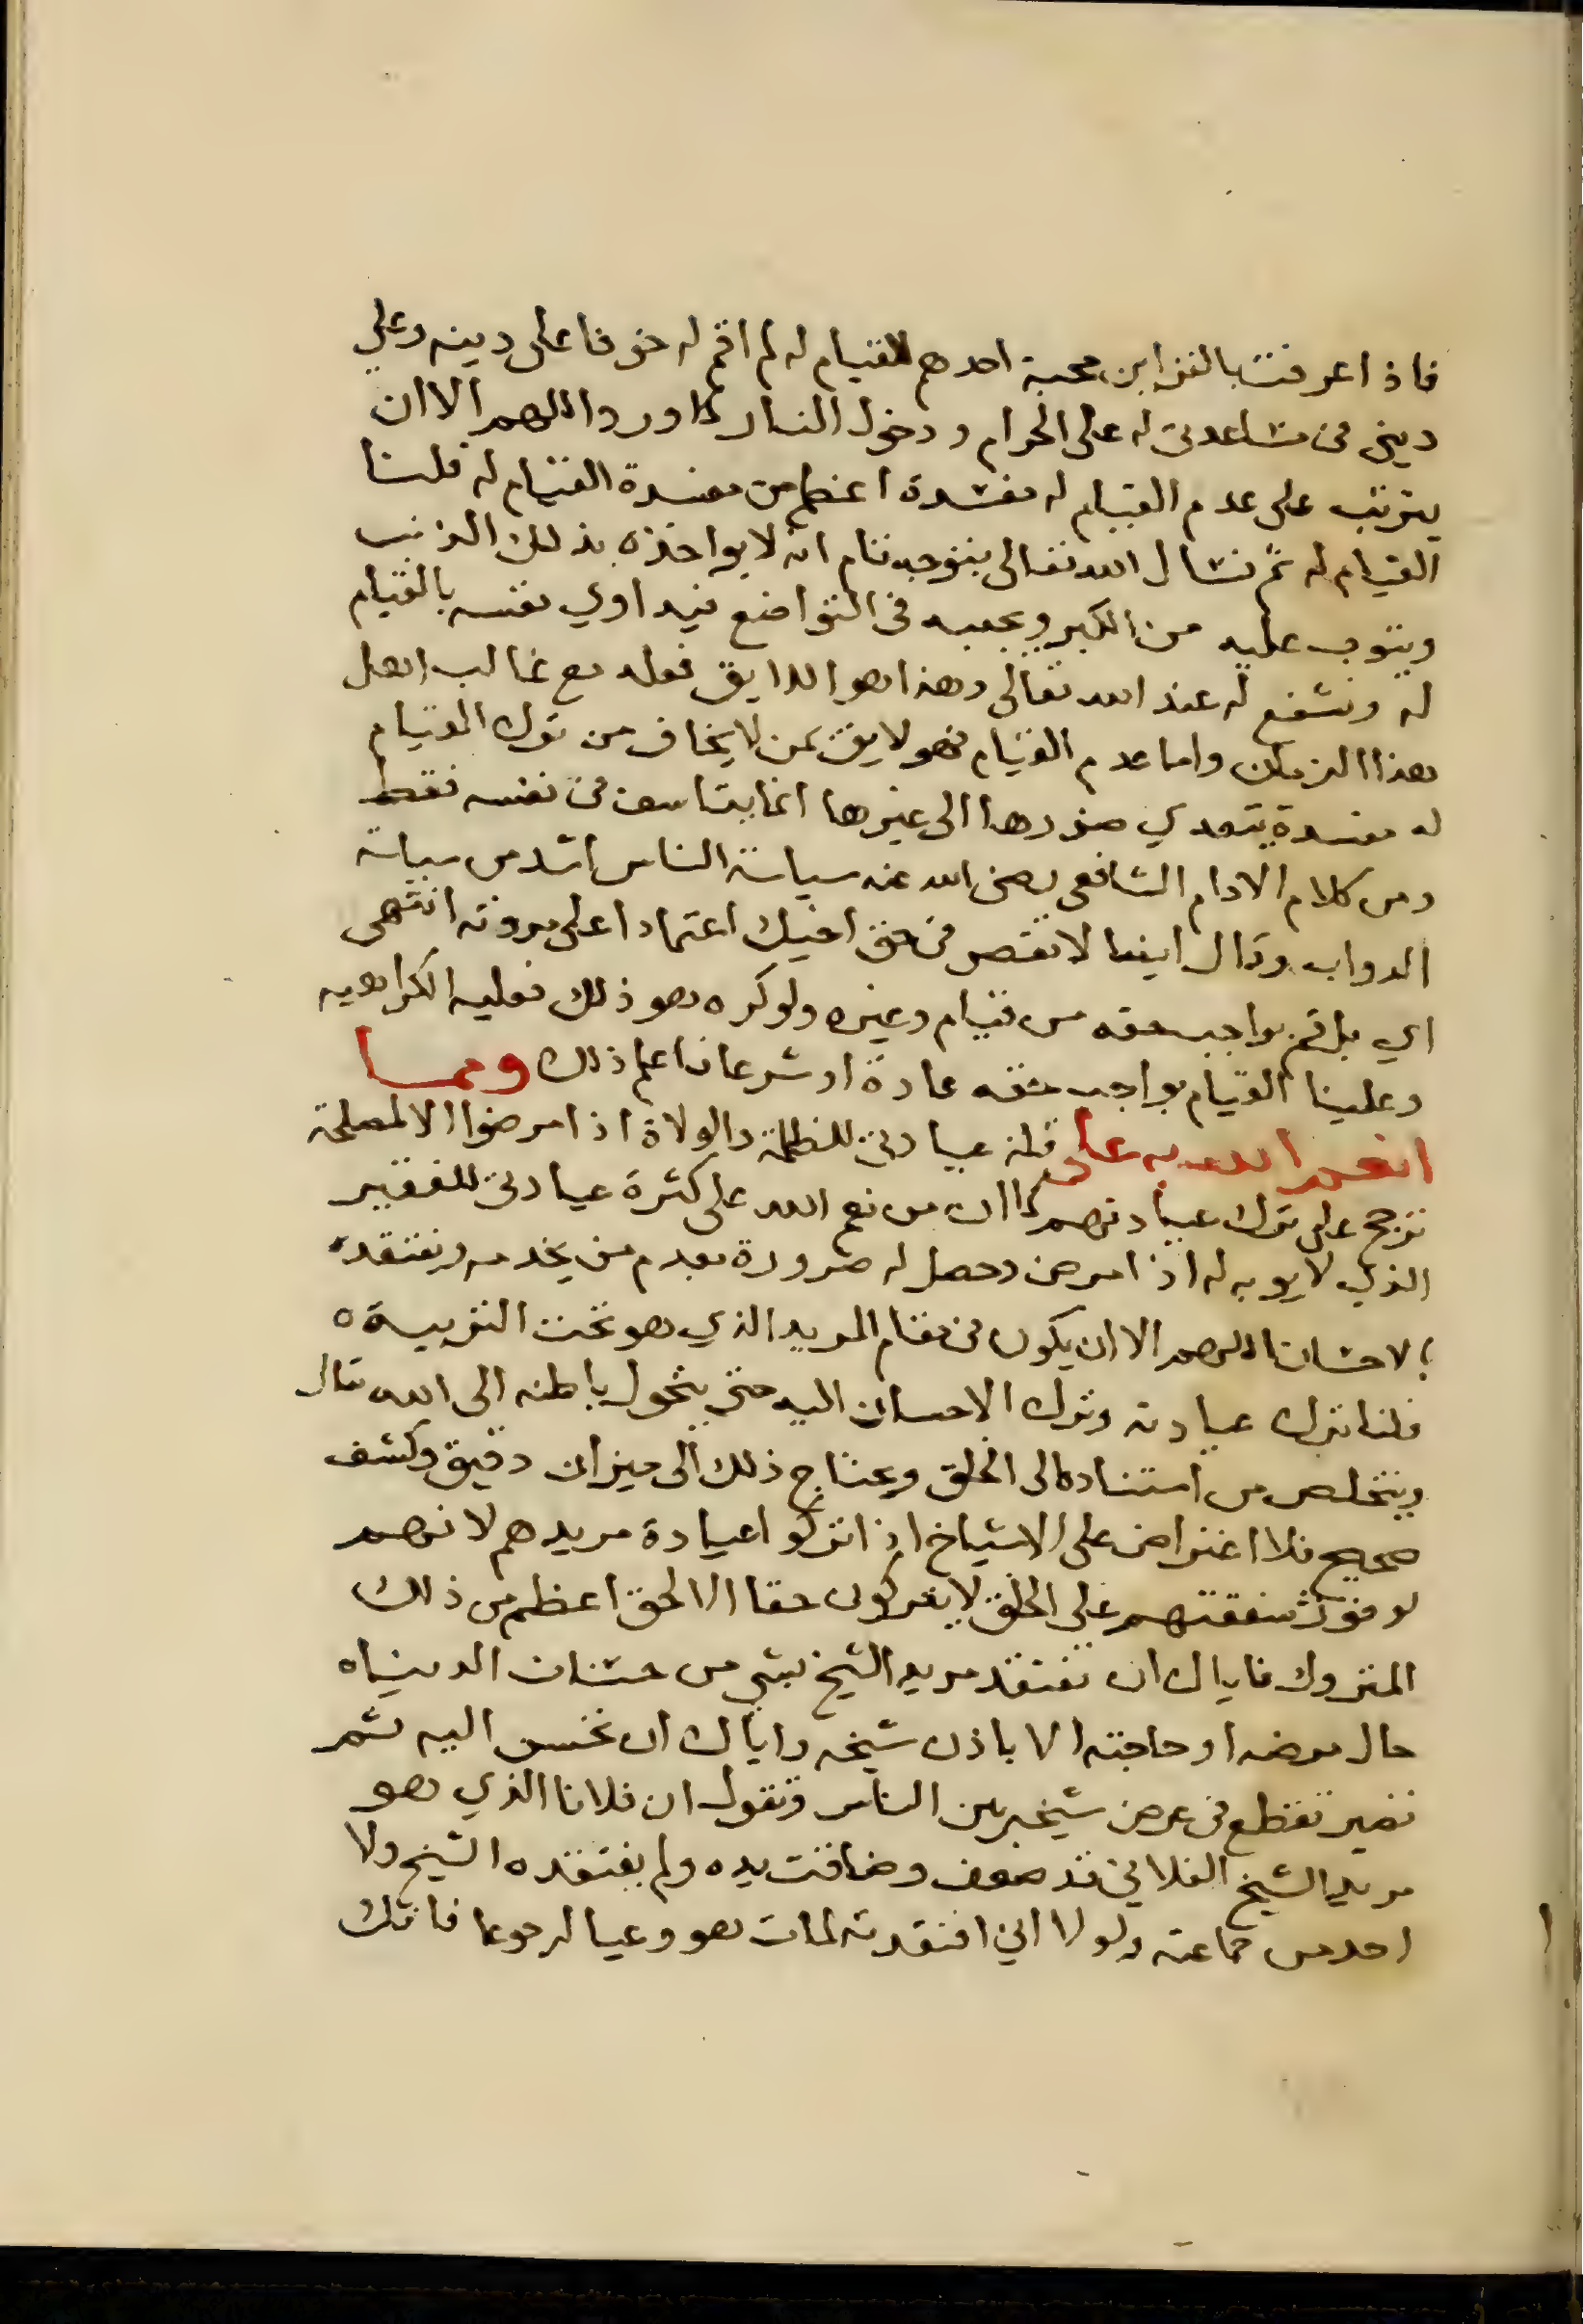 فاذا عرفت بالقراين محبة احدهم للقيام له لم اقم له خوفا على دينه وعلى
ديني من مساعدتي له على الحرام ودخول النار كما ورد اللهم الا ان
يترتب على عدم القيام له مفسدة اعظم من مفسدة القيام له فلنا
القيام له ثم نسال الله تعالى بتوجه تام انه لا يواخذه بذلك الذنب
ويتوب عليه من الكبر ويحببه في التواضع فيداوي نفسه بالقيام
له ونشفع له عند الله تعالى وهذا هو اللايق فعله مع غالب اهل
هذا الزمان واما عدم القيام فهو لايق بمن لا يخاف من ترك القيام
له مفسدة يتعدي ضررها الى غيرها انما يتاسف في نفسه فقط
ومن كلام الامام الشافعي رضي الله عنه سياسة الناس اشد من سياسة
الدواب وقال ايضا لا تقصر في حق اخيك اعتمادا على مروته انتهى
اي بل قم بواجب حقه من قيام وغيره ولو كره هو ذلك فعليه الكراهيه
وعلينا القيام بواجب حقه عادة او شرعا فاعلم ذلك ومما
انعم الله به على قلة عيادتي للظلمة والولاة اذا مرضوا الا لمصلحة
ترجح على ترك عيادتهم كما ان من نعم الله على كثرة عيادتي للفقير
الذي لا يوبه له اذا مرض وحصل له ضرورة بعدم من يخدمه ويفتقده
بالاحسان اللهم الا ان يكون في مقام المريد الذي هو تحت التربية ه
فلنا ترك عيادته وترك الاحسان اليه حتى يتحول باطنه الى الله تعالى
ويتخلص من استناده الى الخلق ويحتاج ذلك الى ميزان دقيق وكشف
صحيح فلا اعتراض على الاشياخ اذا تركوا عيادة مريدهم لانهم
لوفور شفقتهم على الخلق لا يتركون حقا الا لحق اعظم من ذلك
المتروك فاياك ان تفتقد مريد الشيخ بشي من حسنات الدنيا ه
حال مرضه او حاجته الا باذن شيخه واياك ان تحسن اليه ثم
تصير تقطع في عرض شيخه بين الناس وتقول ان فلانا الذي هو
مريد الشيخ الفلاني قد ضعف وضاقت يده ولم يفتقده الشيخ ولا
احد من جماعته ولولا اني افتقدته لمات هو وعياله جوعا فانك